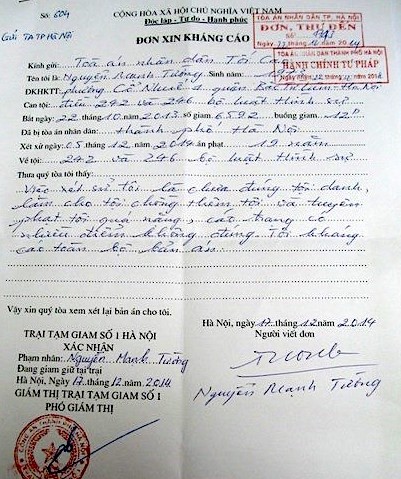 Số: 604
CỘNG HÒA XÃ HỘI CHỦ NGHĨA VIỆT NAM
Độc lập - Tự do - Hạnh phúc
Gửi TATP Hà Nội
TÒA ÁN NHÂN DÂN TP. HÀ NỘI
ĐƠN, THƯ ĐẾN
Số:
Ngày
ĐƠN XIN KHÁNG CÁO
TÒA ÁN NHÂN DÂN THÀNH PHỐ HÀ NỘI
HÀNH CHÍNH TƯ PHÁP
Kính gửi: Toà án nhân dân Tối Cao
Tên tôi là: Nguyễn Mạnh Tường Sinh năm
ĐKHKTT: phường Cổ Nhuế 1 quận Bắc Từ Liêm Hà Nội
Can tội: điều 242 và 246 bộ luật hình sự
Bắt ngày 22 tháng 10 năm 2013 số giam 6592 buồng giam 12
Đã bị tòa án nhân dân: thành phố Hà Nội
Xét xử ngày 05 tháng 12 năm 2014 án phạt 19 năm
Về tội: 242 và 246 bộ luật hình sự
Thưa quý tòa tôi thấy
Việc xét xử tôi là chưa đúng tội danh,
làm cho tôi chồng thêm tội và tuyên
phạt tội quá nặng, cát trạng có
nhiều điểm không đúng Tôi kháng
cáo toàn bộ bản án.
Vậy xin quý tòa xem xét lại bản án cho tôi.
TRẠI TẠM GIAM SỐ 1 HÀ NỘI
XÁC NHẬN
Phạm nhân: Nguyễn Mạnh Tường
Đang giam giữ tại trại
Hà Nội, Ngày 17 tháng 12 năm 2014
GIÁM THỊ TRẠI TẠM GIAM SỐ 1
PHÓ GIÁM THỊ
Hà Nội, ngày 17 tháng 12 năm 2014
Người viết đơn
Nguyễn Mạnh Tường